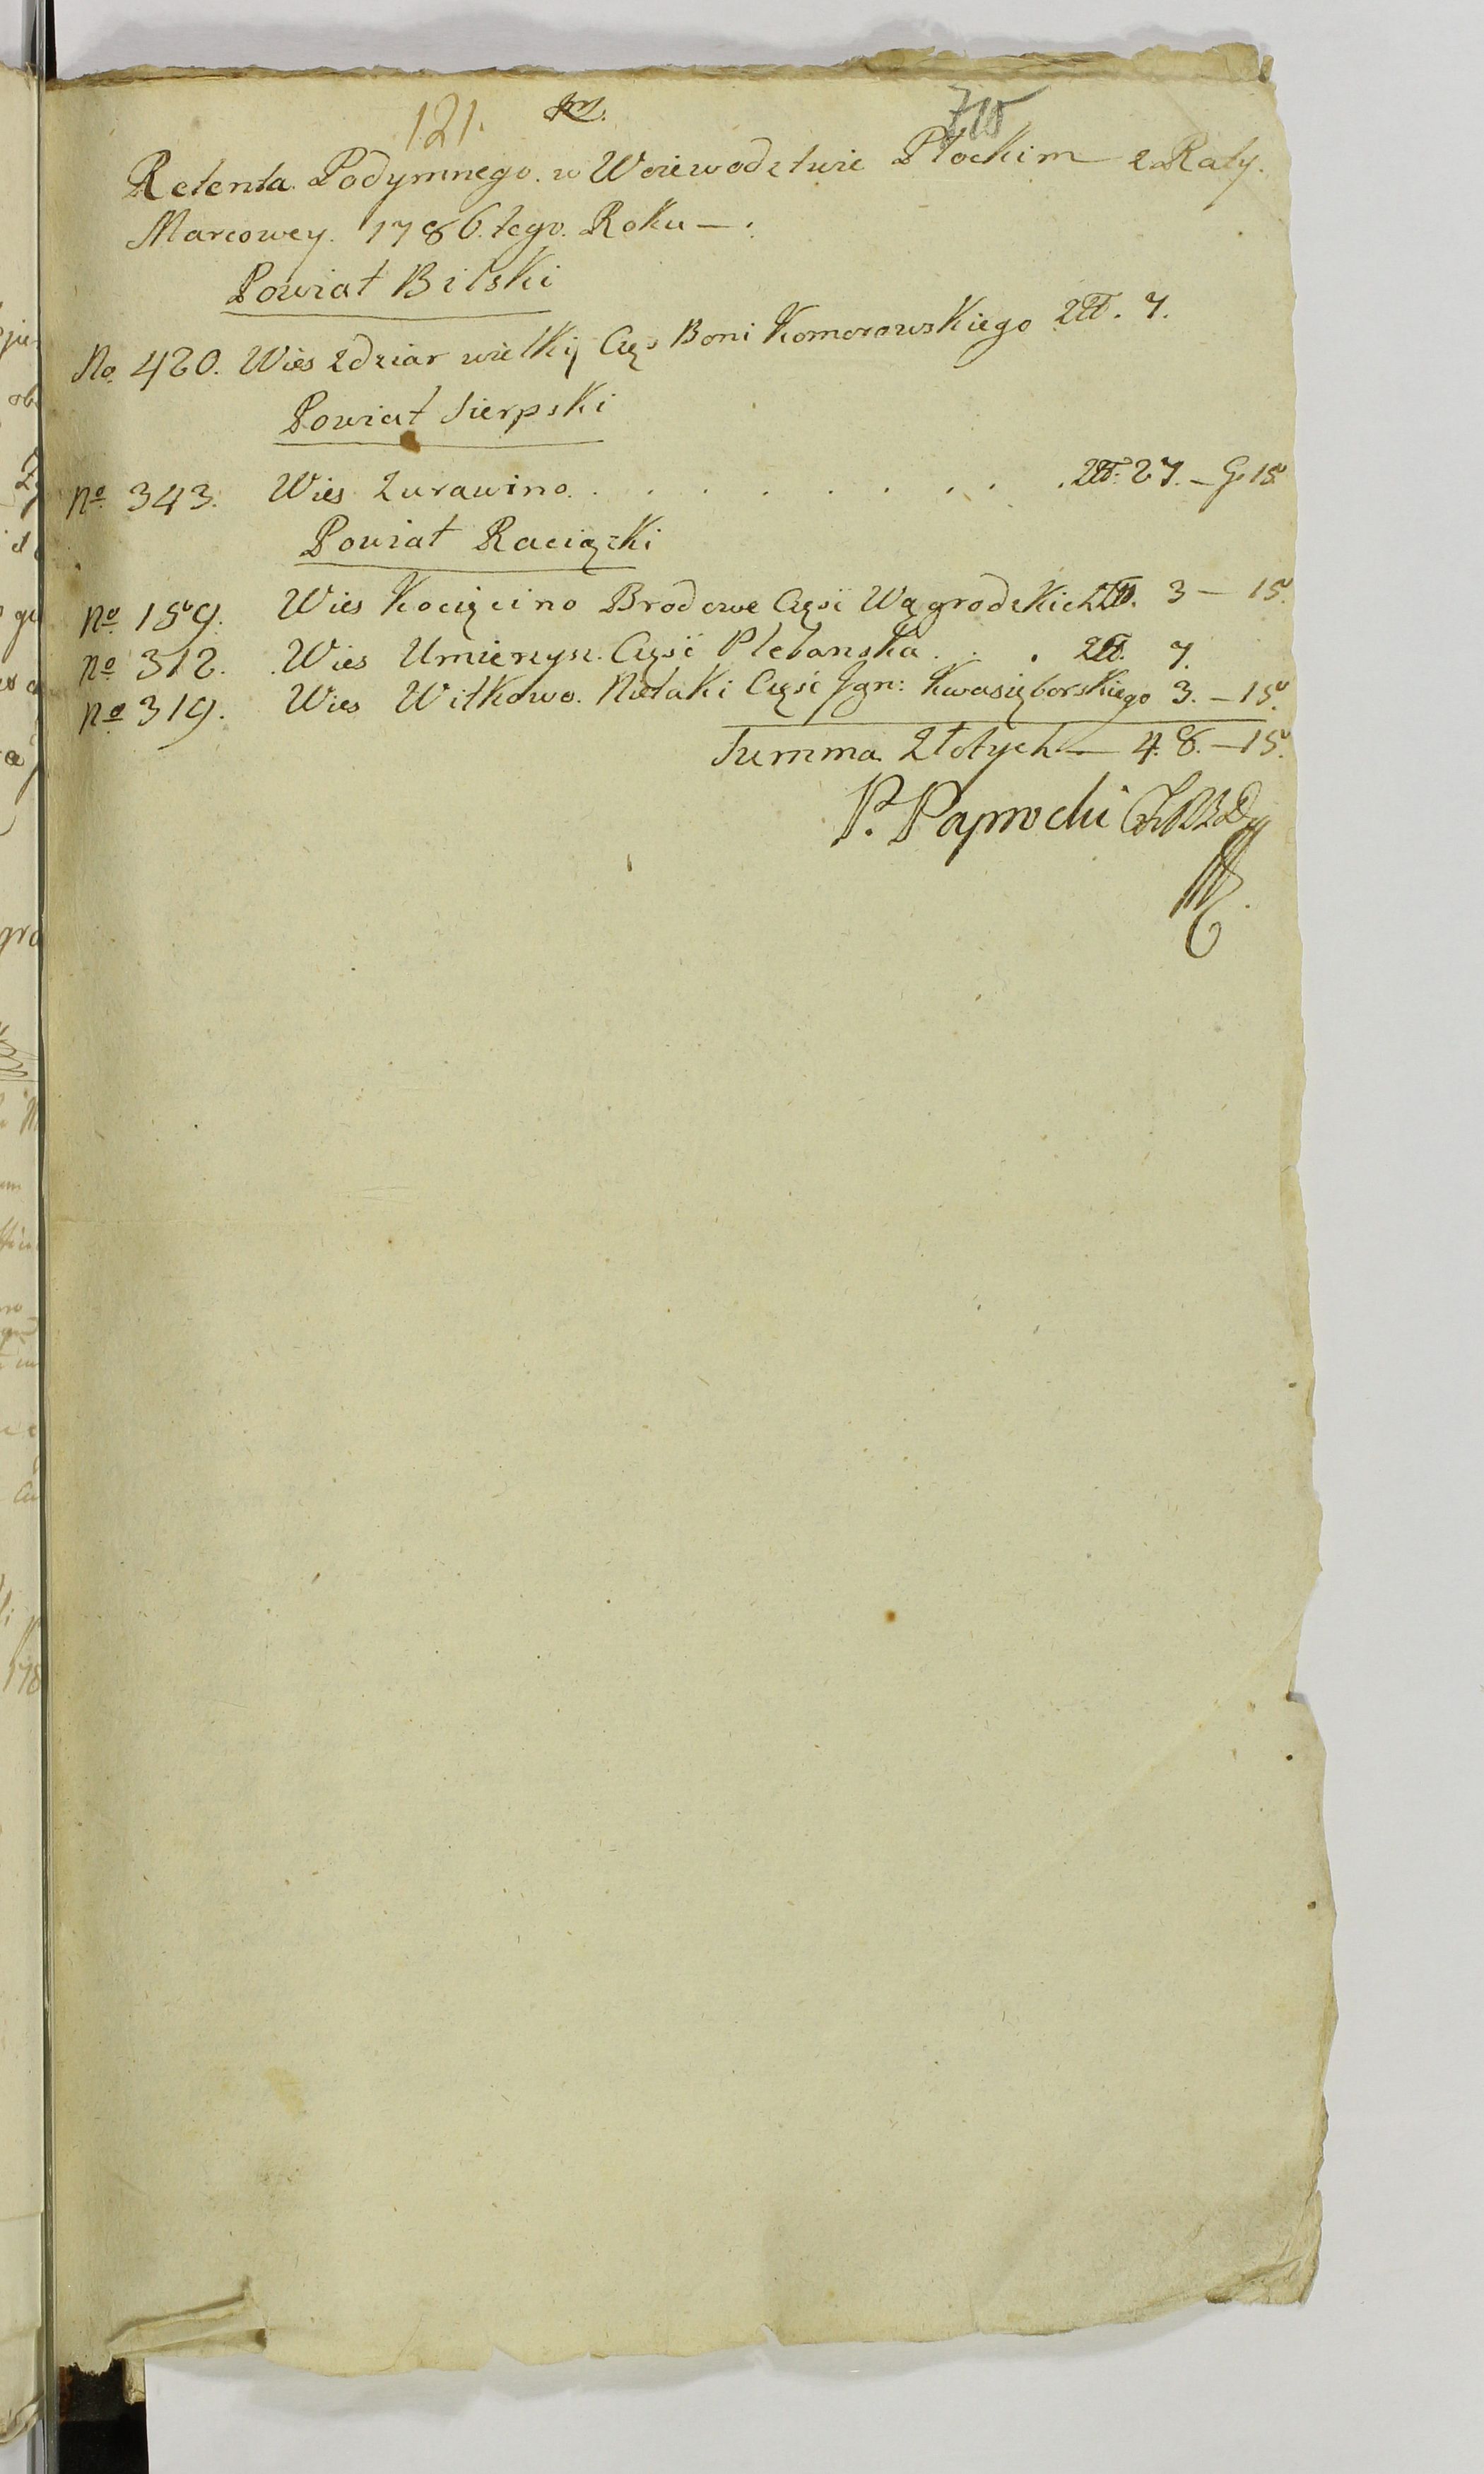 121.
710
Retenta Podymnego w Woiewodztwie Płockim z Raty.
Marcowey. 1786.tego. Roku —.
Powiat Bilski
No. 420. Wies Zdziar wielki Częś Boni Komorowskiego Złł. 7.
Powiat Sierpski
No. 343. Wies Zurawino. . . . . . . . . Złł. 27. – G. 15
Powiat Raciązki
No. 159. Wies Kocięcino Brodowe Częsć Wągrodzkich Złł. 3 – 15.
No. 312. Wies Umienysz. Częsć Plebanska . . . Złł. 7.
No. 319. Wies Witkowo. Częsć Jgn: Kwasięborskiego 3. – 15.
Summa Złotych — 48. – 15.
P. Paprocki